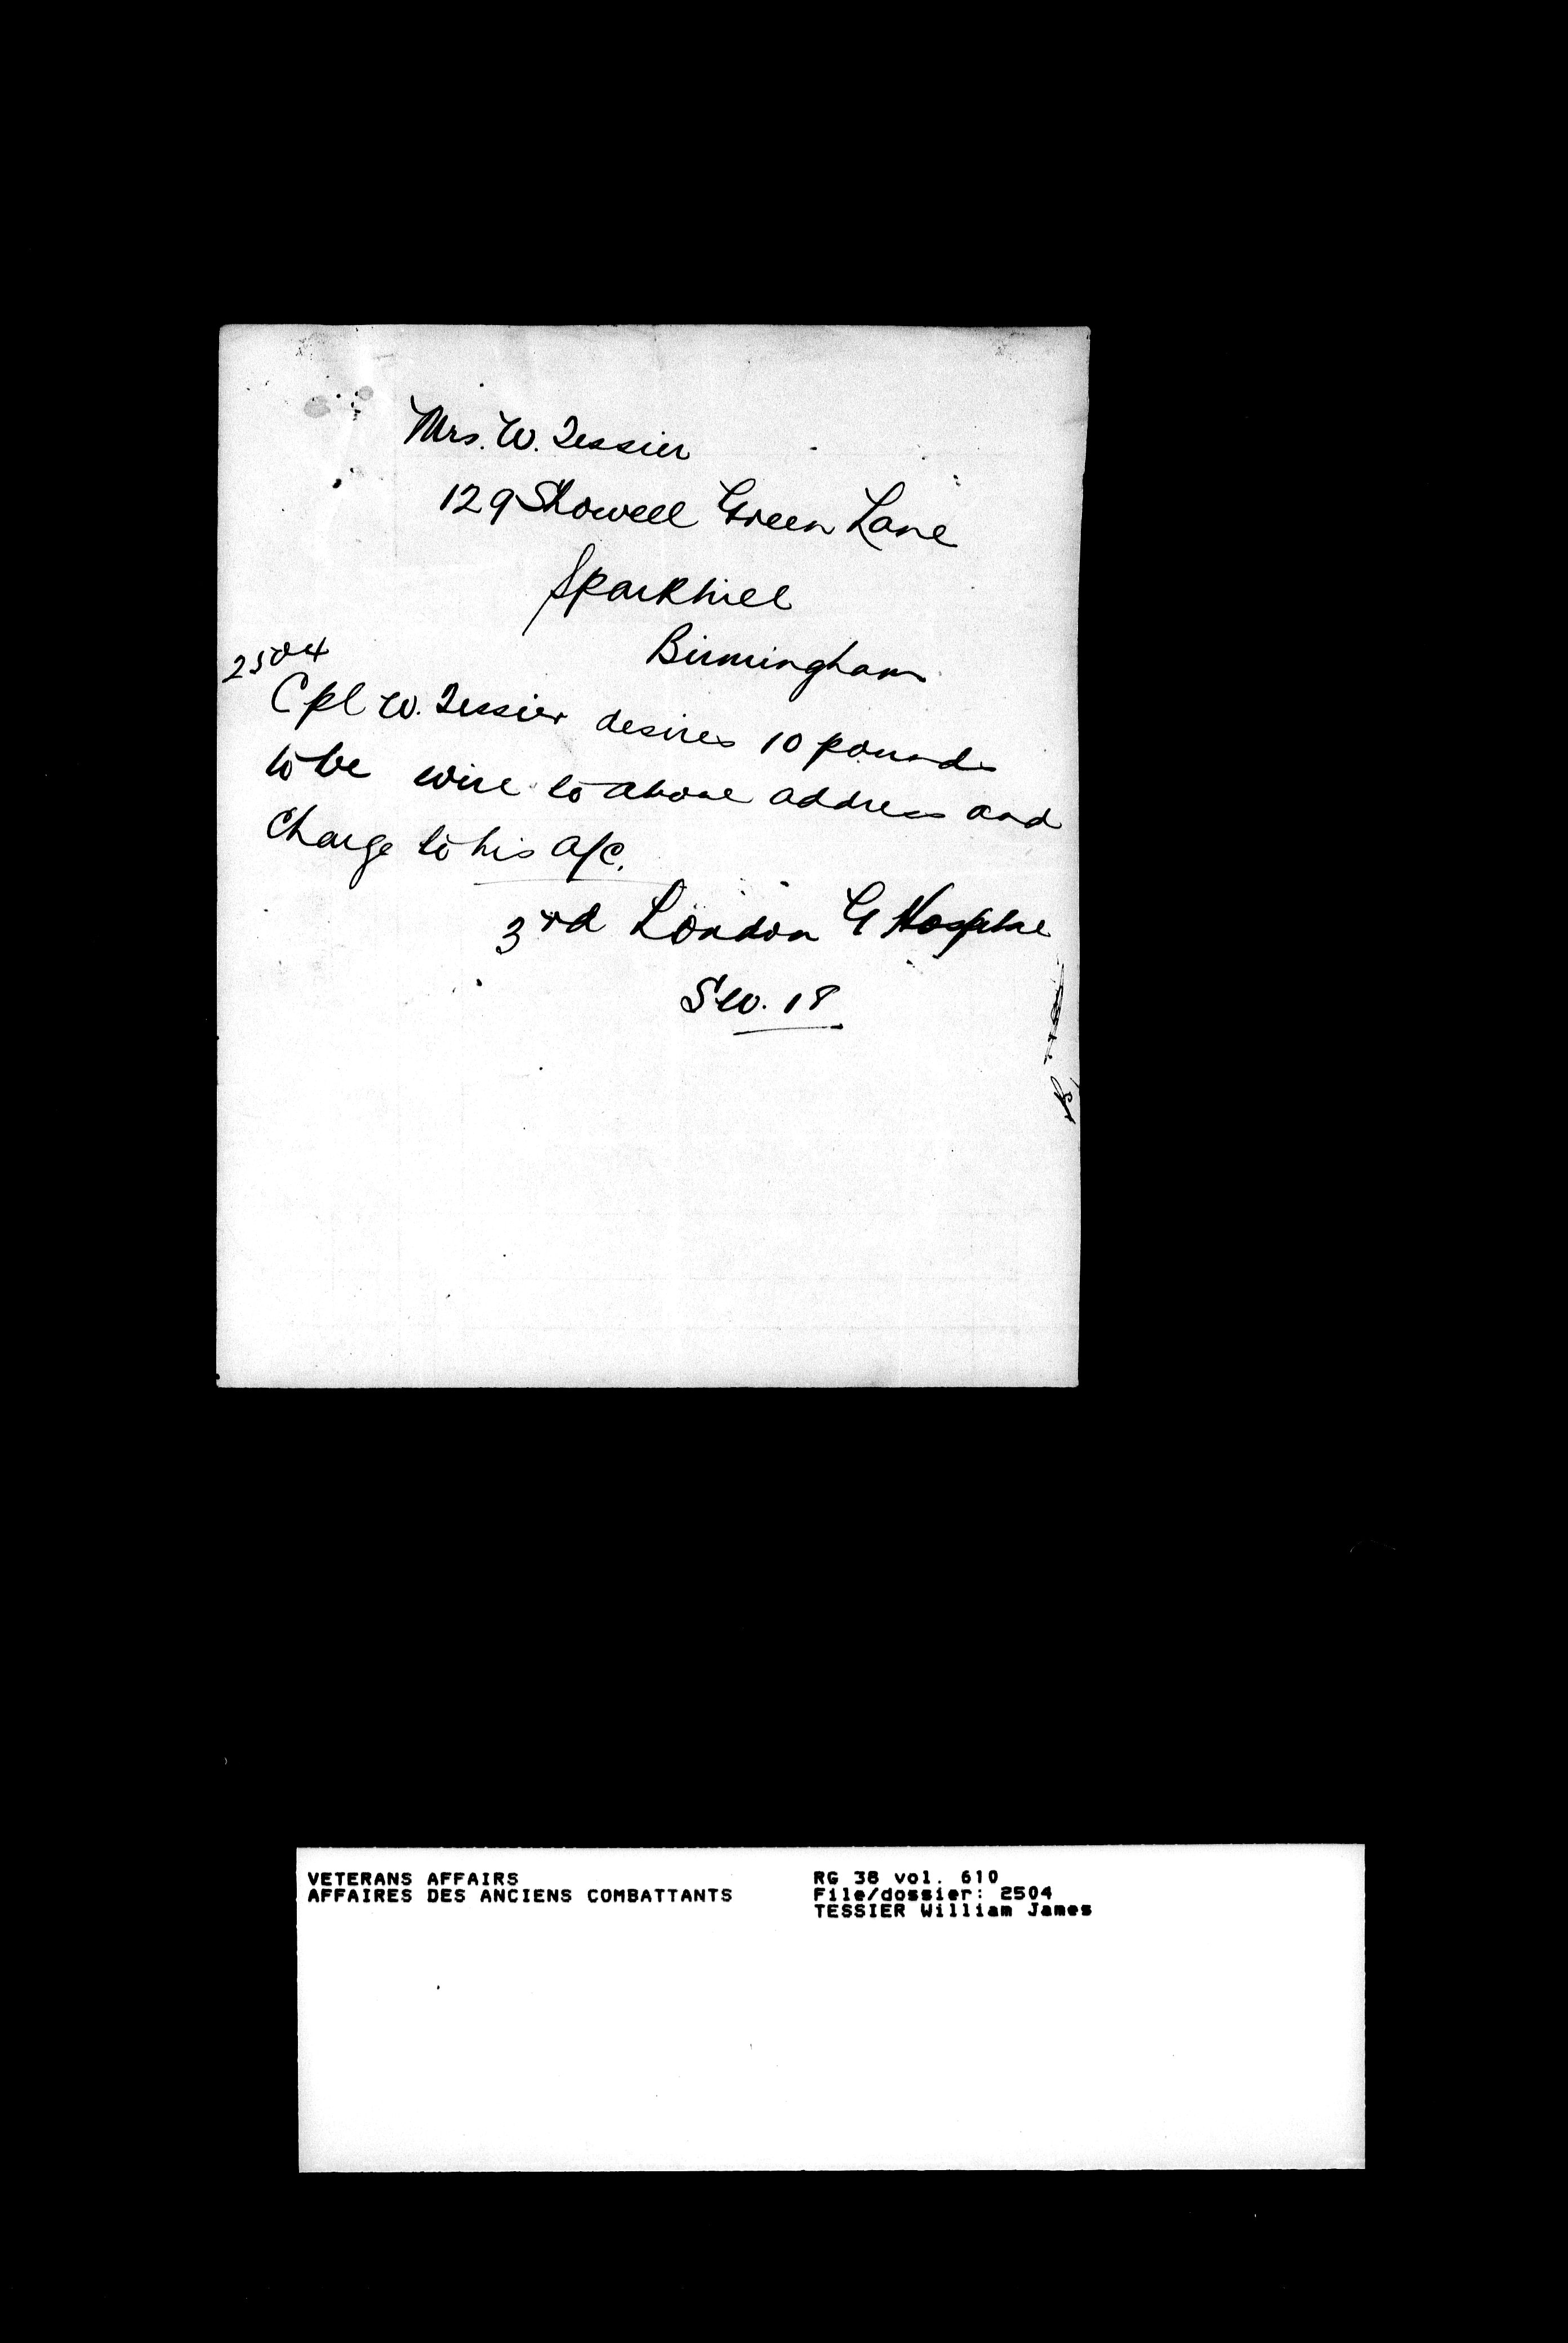 Mrs. W. Tessier
129 Showell Green Lane
Sparkhill
Birmingham
2504
Cpl W. Tessier desires 10 pounds
to be wire to above address and
Charge to his a/c.
3rd London G Hospital
S.W. 18
VETERANS AFFAIRS
AFFAIRES DES ANCIENS COMBATTANTS
RG 38 vol. 610
File/dossier: 2504
TESSIER William James